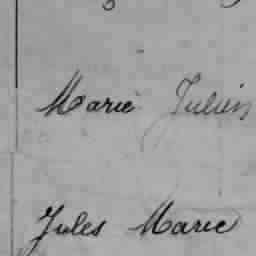 Marie Julien
Jules Marie